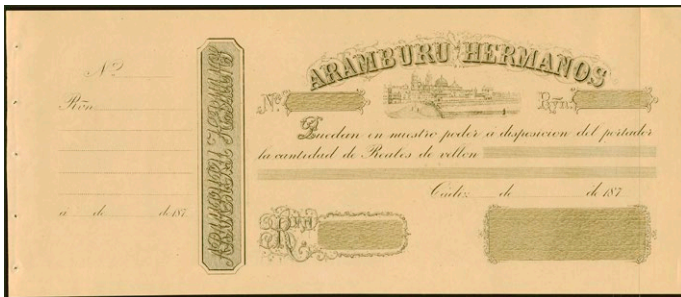 Nº
Rvn
á de de 187
ARAMBURU HERMANOS
ARAMBURU HERMANOS
Nº. Rvn.
Quedan en nuestro poder á disposicion del portador
la cantidad de Reales de vellon
Cádiz de de 187